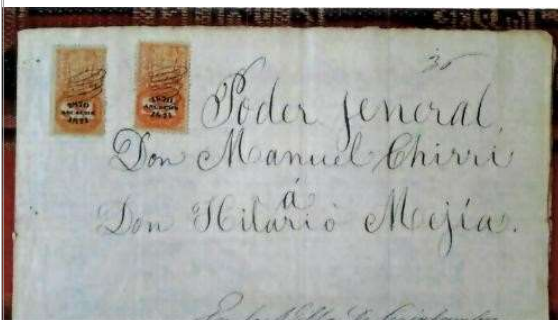 35
Poder jeneral,
Don Manuel Chirri
á
Don Hilario Mejía.
En la Villa de